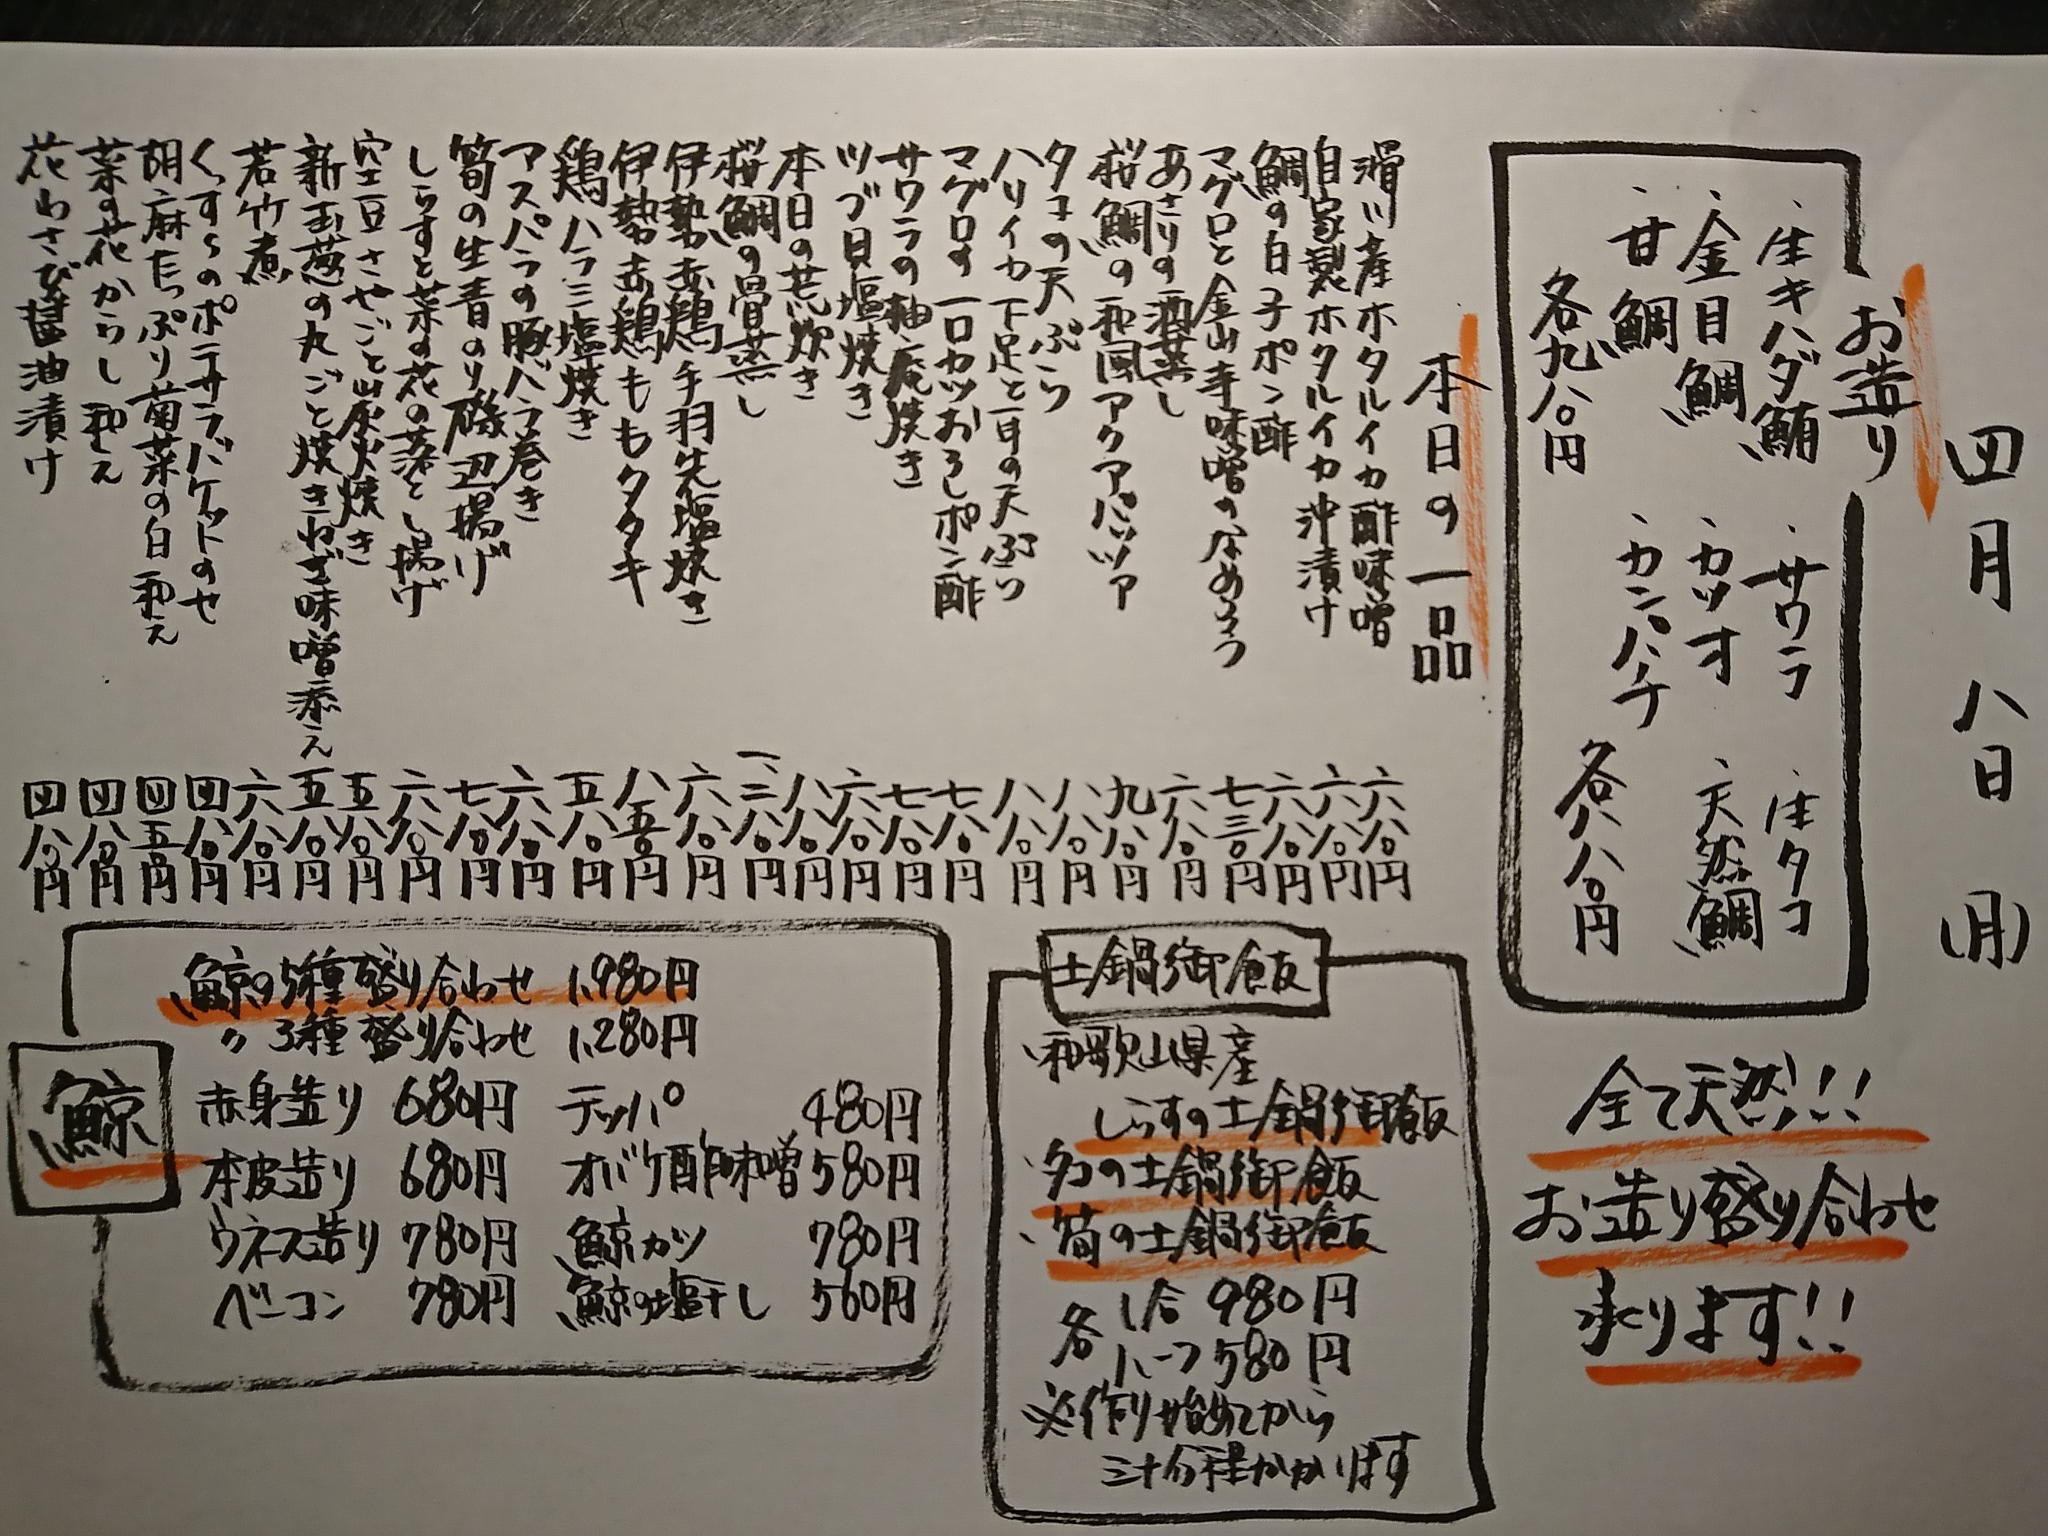 四月八日(月)
お造り
・生キハダ鮪
・金目鯛
・甘鯛
各九八〇円
・サワラ
・カツオ
・カンパチ
・生タコ
・天然鯛
各八八〇円
全て天然!!
お造り盛り合わせ
承ります!!
本日の一品
滑川産ホタルイカ酢味噌 六八〇円
自家製ホタルイカ沖漬け 六八〇円
鯛の白子ポン酢 六八〇円
マグロと金山寺味噌のなめろう 七三〇円
あさりの酒蒸し 六八〇円
桜鯛の和風アクアパッツァ 九八〇円
タコの天ぷら 八八〇円
ハリイカ下足と耳の天ぷら 八八〇円
マグロの一口カツおろしポン酢 七八〇円
サワラの柚庵焼き 七八〇円
ツブ貝塩焼き 六八〇円
本日の荒炊き 八八〇円
桜鯛の骨蒸し 一、二八〇円
伊勢赤鶏手羽先塩焼き 六八〇円
伊勢赤鶏ももタタキ 八五〇円
鶏ハラミ塩焼き 五八〇円
アスパラの豚バラ巻き 六八〇円
筍の生青のり磯辺揚げ 七八〇円
しらすと菜の花の落とし揚げ 六八〇円
空豆さやごと炭火焼き 五八〇円
新玉葱の丸ごと焼きねぎ味噌添え 五八〇円
若竹煮 六八〇円
くずしのポテサラバケットのせ 四八〇円
胡麻たっぷり菊菜の白和え 四五〇円
菜の花からし和え 四八〇円
花わさび醤油漬け 四八〇円
土鍋御飯
・和歌山県産
しらすの土鍋御飯
・タコの土鍋御飯
・筍の土鍋御飯
各 1合 980円
ハーフ 580円
※作り始めてから
三十分程かかります
鯨
鯨の5種盛り合わせ 1,980円
〃 3種盛り合わせ 1,280円
赤身造り 680円 テッパ 480円
本皮造り 680円 オバケ酢味噌 580円
ウネス造り 780円 鯨カツ 780円
ベーコン 780円 鯨の塩干し 560円